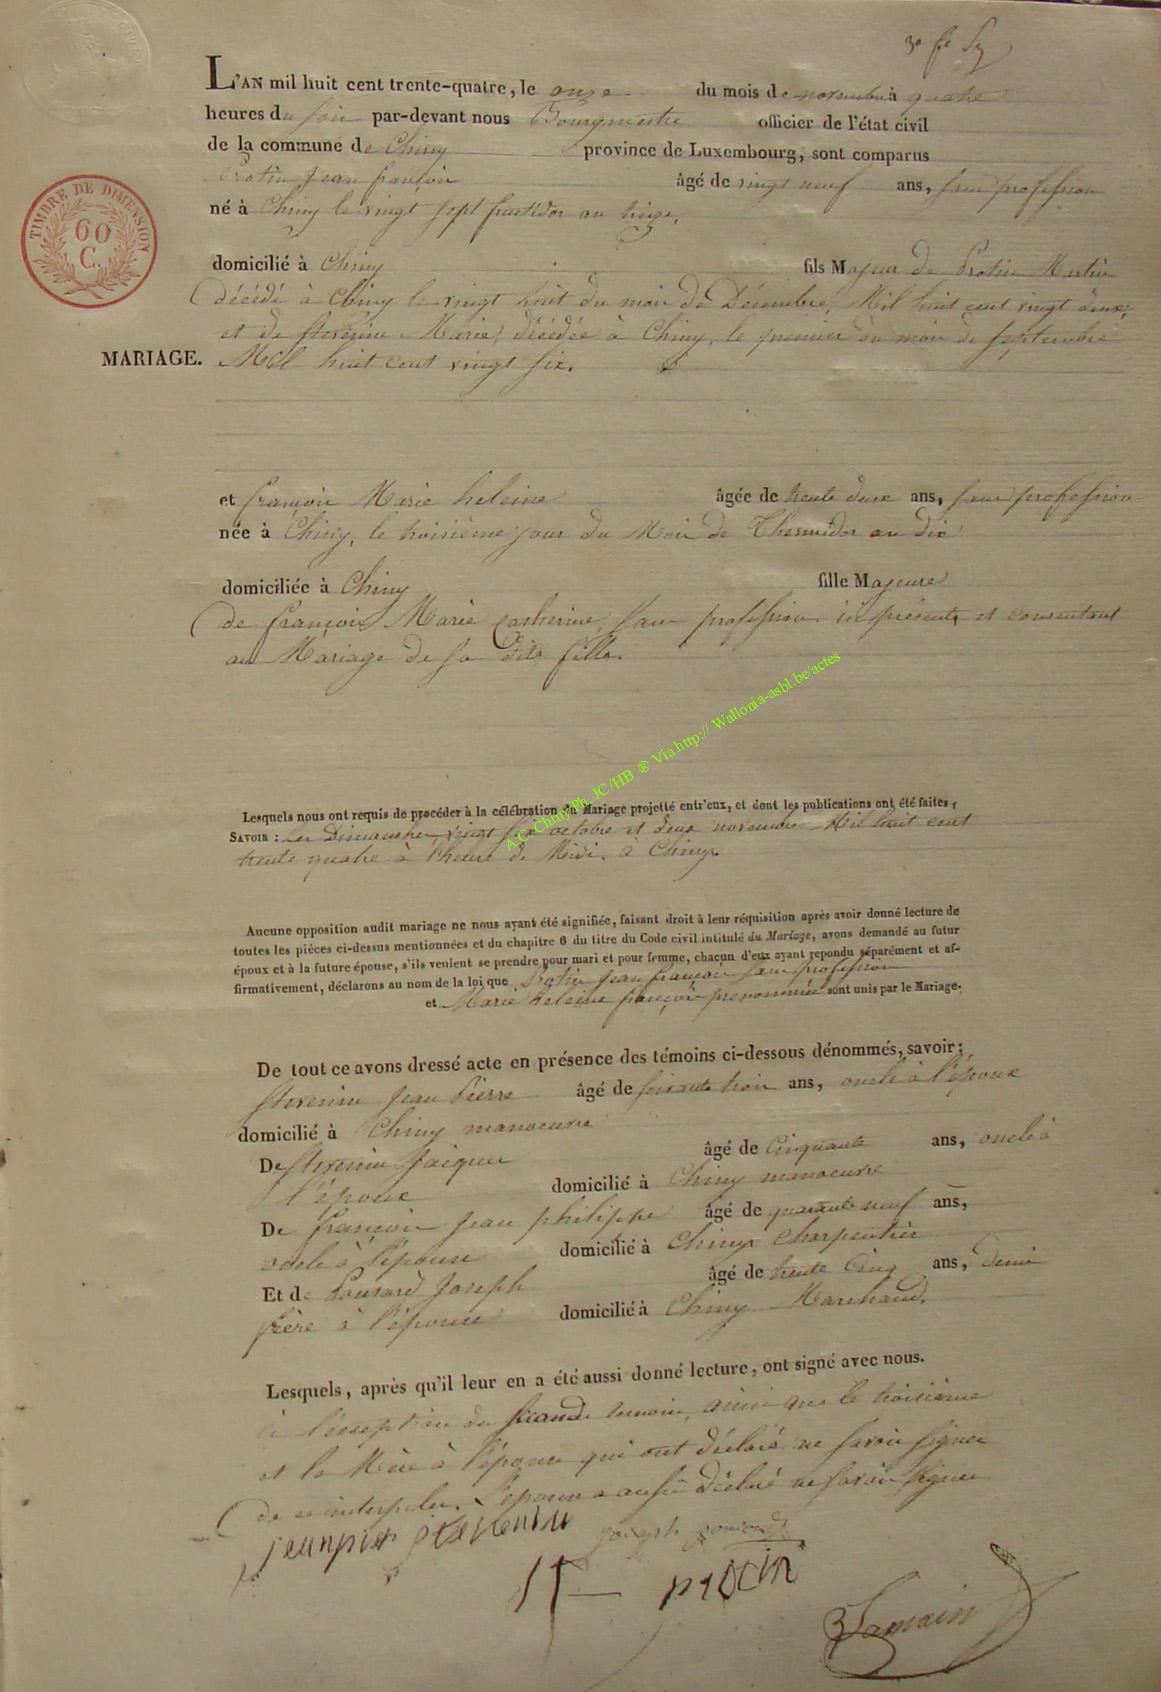 L'AN mil huit cent trente-quatre, le onze du mois de novembre à quatre
heures du soir par-devant nous Bourgmestre officier de l'état civil
de la commune de Chiny province de Luxembourg, sont comparus
Protin Jean françois âgé de vingt neuf ans, sans profession
né à Chiny le vingt sept fructidor an treize,
TIMBRE DE DIMENSION
60
C.
domicilié à Chiny fils Majeur de Protin Martin
décédé à Chiny le vingt huit du mois de Décembre, Mil huit cent vingt deux,
et de Marie, décédée à Chiny, le premier du mois de septembre
MARIAGE. Mil huit cent vingt six.
et françois Marie heleine âgée de trente deux ans, sans profession
née à Chiny, le troisième jour du Mois de Thermidor an dix
domiciliée à Chiny fille Majeure
de françois Marie catherine, sans profession ici présente et consentant
au Mariage de sa dite fille.
A.C. Chiny Ph. JC/HB ® Via http:// Wallonia-asbl.be/actes
Lesquels nous ont requis de procéder à la célébration du Mariage projetté entr'eux, et dont les publications ont été faites,
SAVOIR : Les Dimanches, vingt six octobre et deux novembre Mil huit cent
trente quatre à l'heure de Midi. à Chiny.
Aucune opposition audit mariage ne nous ayant été signifiée, faisant droit à leur réquisition après avoir donné lecture de
toutes les pièces ci-dessus mentionnées et du chapitre 6 du titre du Code civil intitulé du Mariage, avons demandé au futur
époux et à la future épouse, s'ils veulent se prendre pour mari et pour femme, chacun d'eux ayant repondu séparément et af-
firmativement, déclarons au nom de la loi que Protin Jean françois sans profession
et Marie heleine françois prenommée sont unis par le Mariage.
De tout ce avons dressé acte en présence des témoins ci-dessous dénommés, savoir:
Jean Pierre âgé de soixante trois ans, oncle à l'époux
domicilié à Chiny manoeuvre
De Jacques âgé de Cinquante ans, oncle à
l'époux domicilié à Chiny manoeuvre
De françois Jean philippe âgé de quarante neuf ans,
oncle à l'épouse domicilié à Chiny Charpentier
Et de Ponsard Joseph âgé de trente Cinq ans, demi
frère à l'épouse domicilié à Chiny Marchand.
Lesquels, après qu'il leur en a été aussi donné lecture, ont signé avec nous.
à l'exception du second temoin, ainsi que le troisième
et la Mère à l'épouse qui ont déclaré ne savoir signer
de ce interpeller. L'épouse a aussi déclaré ne savoir signer
jeanpier
joseph ponsard
protin